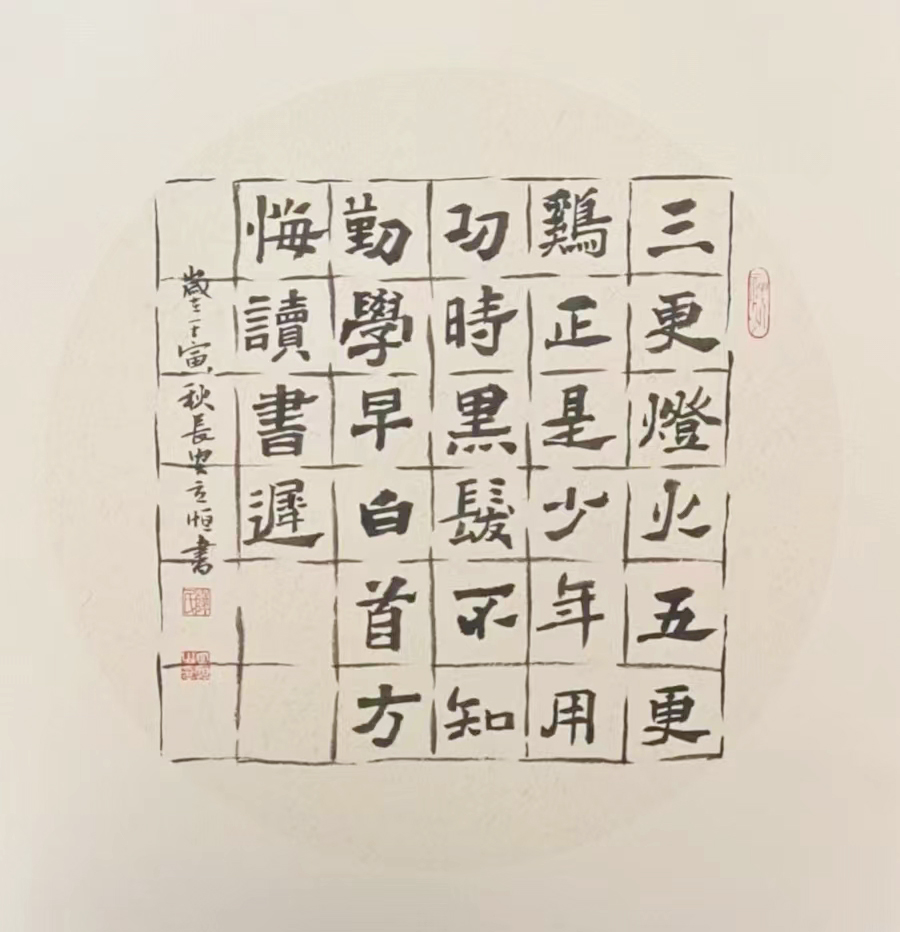 三更燈火五更
鷄正是少年用
功時黒髮不知
勤學早白首方
悔讀書遲
歲在壬寅秋長安立恒書